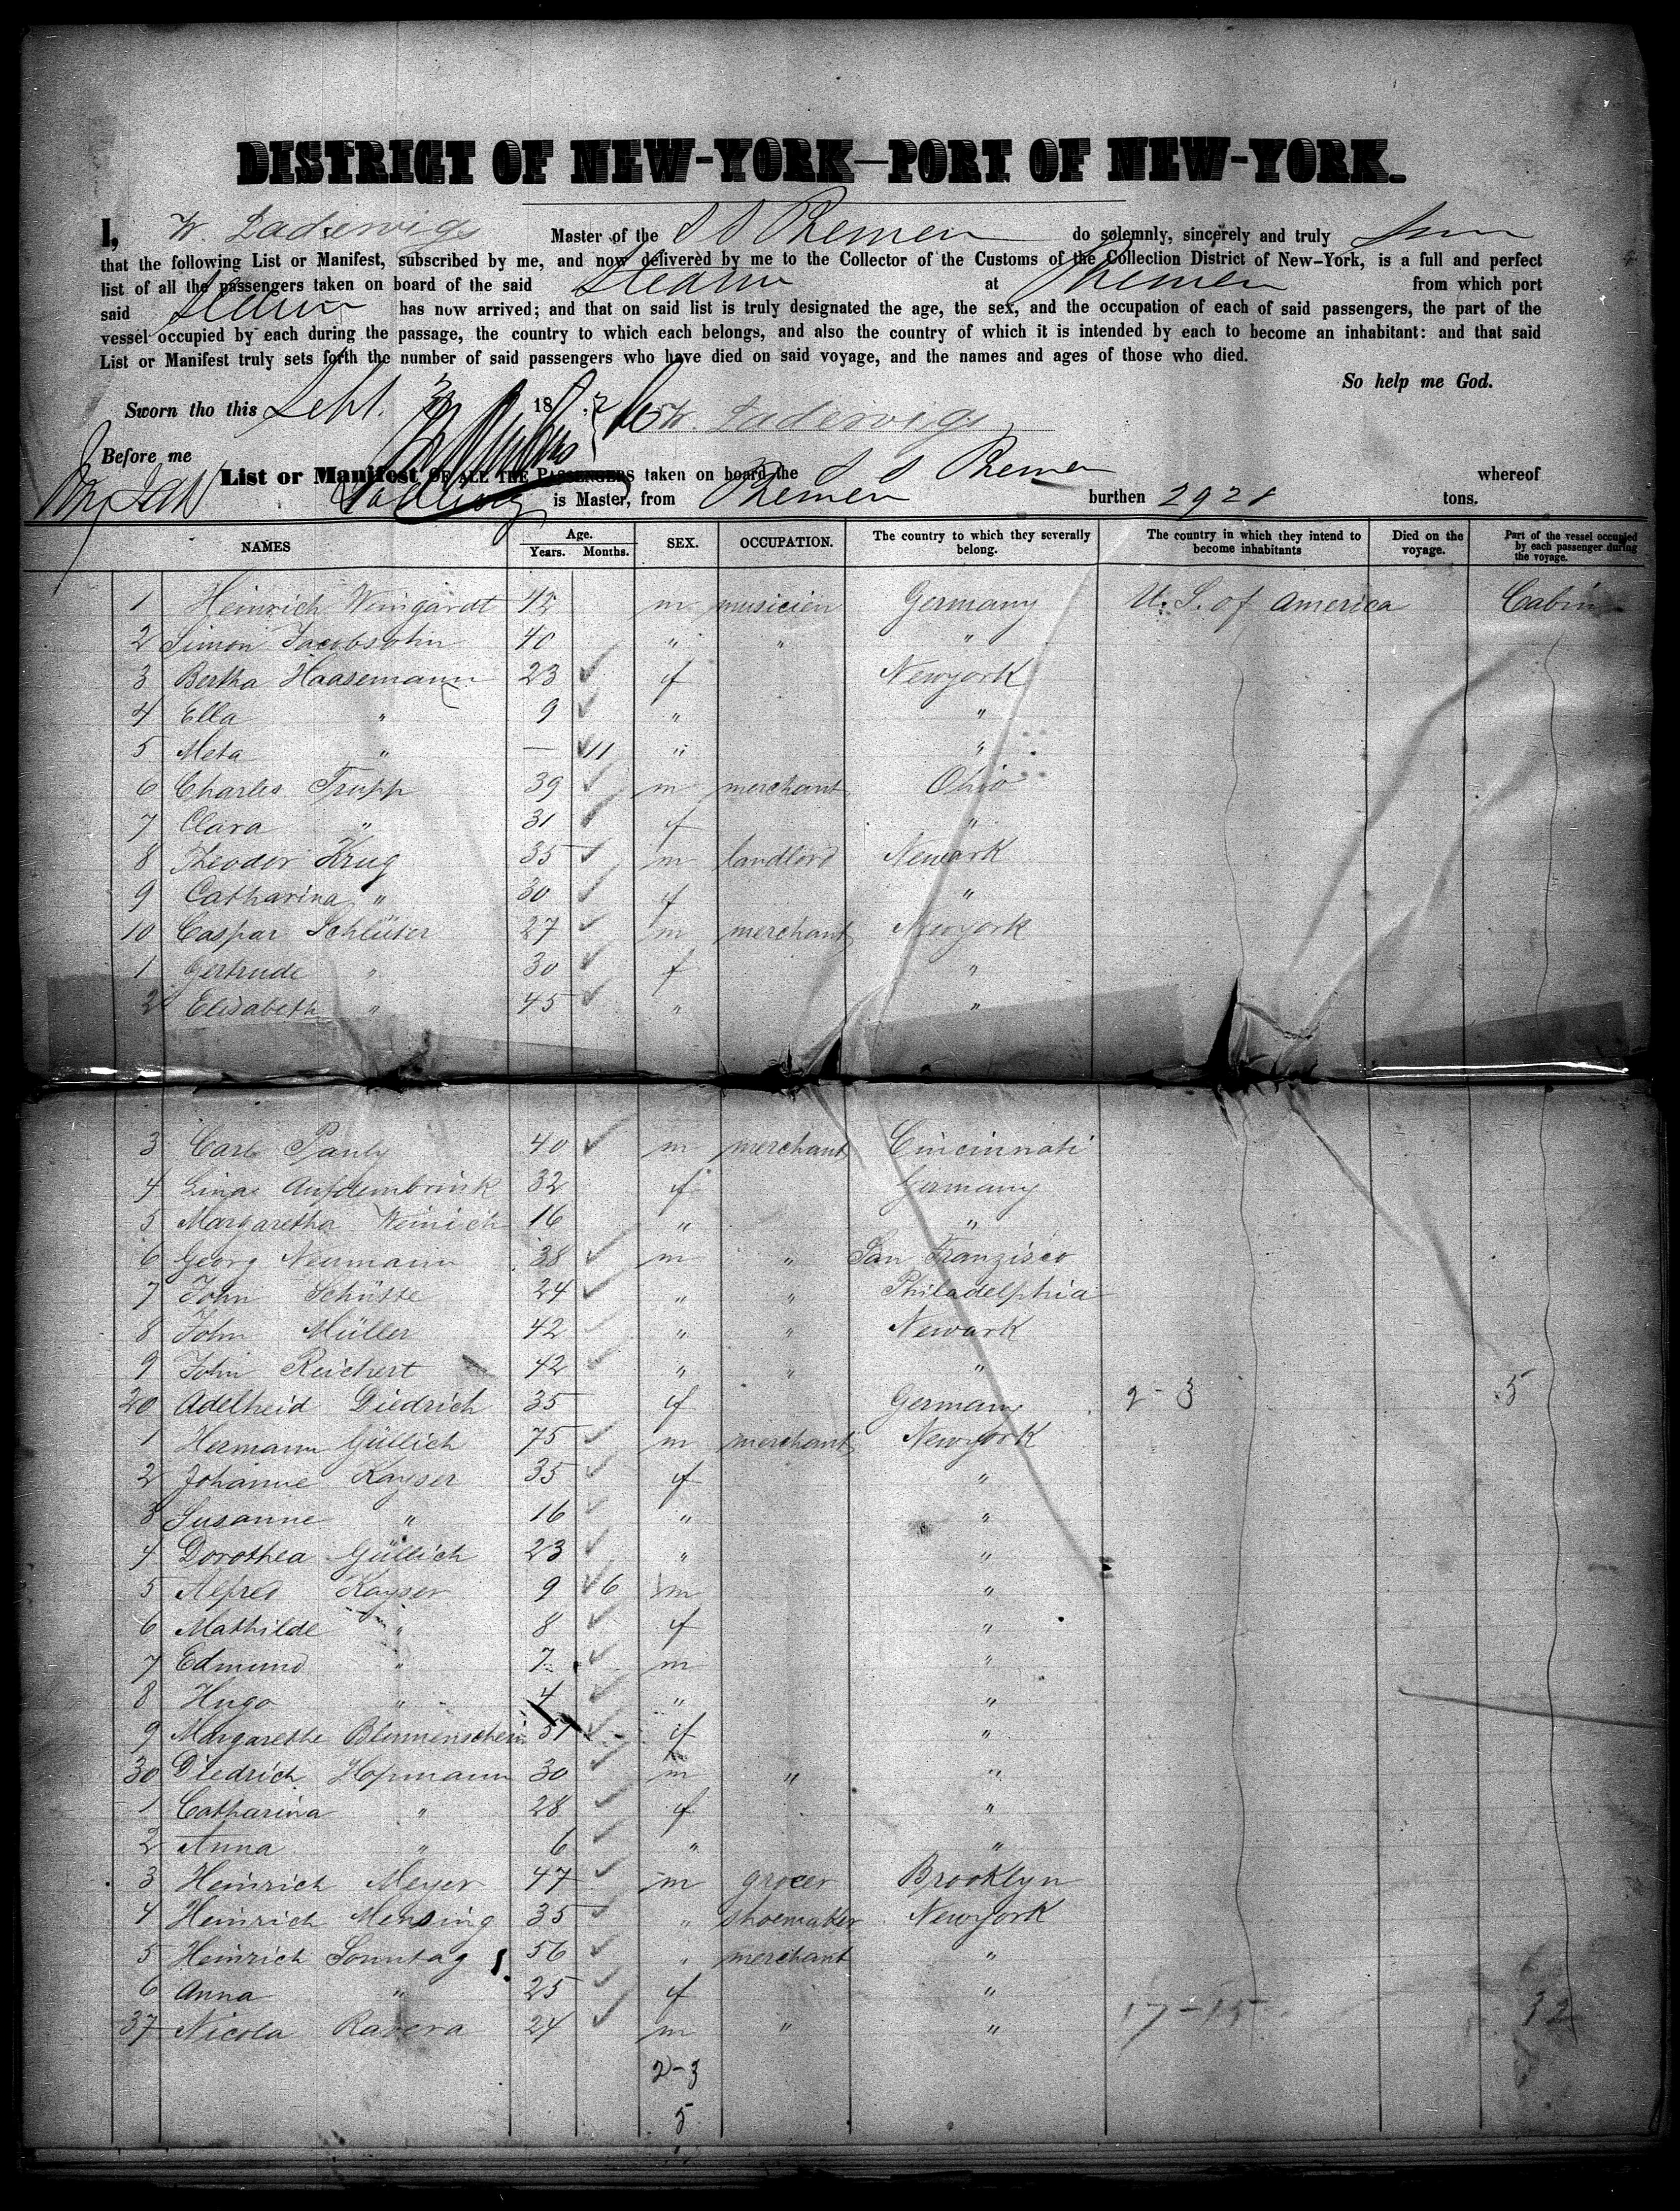 DISTRICT OF NEW-YORK—PORT OF NEW-YORK.
I, W. Ladewigs Master of the S S Bremen do solemnly, sincerely and truly
that the following List or Manifest, subscribed by me, and now delivered by me to the Collector of the Customs of the Collection District of New-York, is a full and perfect
list of all the passengers taken on board of the said Steam at Bremen from which port
said Steam has now arrived; and that on said list is truly designated the age, the sex, and the occupation of each of said passengers, the part of the
vessel occupied by each during the passage, the country to which each belongs, and also the country of which it is intended by each to become an inhabitant: and that said
List or Manifest truly sets forth the number of said passengers who have died on said voyage, and the names and ages of those who died.
So help me God.
Sworn tho this Sept. 18 W. Ladewigs
Before me
List or Manifest OF ALL THE PASSENGERS taken on board the S S Bremen whereof
Ladewigs is Master, from Bremen burthen 2928 tons.
NAMES Age. Years. Months. SEX. OCCUPATION. The country to which they severally belong. The country in which they intend to become inhabitants Died on the voyage. Part of the vessel occupied by each passenger during the voyage.
1 Heinrich Weingardt 42 m musicien Germany U. S. of America Cabin
2 Simon Jacobsohn 40 " " "
3 Bertha Haasemann 23 f Newyork
4 Ella " 9 " "
5 Meta " — 11 " "
6 Charles Trupp 39 m merchant Ohio
7 Clara " 31 f "
8 Theodor Krug 35 m landlord Newark
9 Catharina " 30 f "
10 Caspar Schlüter 27 m merchant Newyork
1 Gertrude " 30 f "
2 Elisabeth " 45 " "
3 Carl Pauly 40 m merchant Cincinnati
4 Lina Aufdembrink 32 f Germany
5 Margaretha Weinich 16 " "
6 Georg Neumann 38 m " San Franzisco
7 John Schütte 24 " " Philadelphia
8 John Müller 42 " " Newark
9 John Reichert 42 " " "
20 Adelheid Diedrich 35 f Germany 2-3 5
1 Hermann Güllich 75 m merchant Newyork
2 Johanne Kayser 35 f "
3 Susanne " 16 " "
4 Dorothea Güllich 23 " "
5 Alfred Kayser 9 6 m "
6 Mathilde " 8 f "
7 Edmund " 7 m "
8 Hugo " 4 " "
9 Margarethe Blumenschein 57 f "
30 Diedrich Hofmann 30 m " "
1 Catharina " 28 f "
2 Anna " 6 " "
3 Heinrich Meyer 47 m grocer Brooklyn
4 Heinrich Mensing 35 " shoemaker Newyork
5 Heinrich Sonntag 56 " merchant "
6 Anna " 25 f "
37 Nicola Ravera 24 m " " 17-15 32
2-3
5